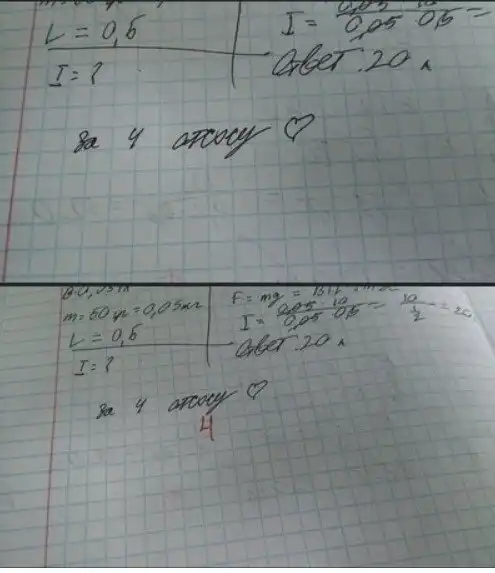 L = 0,5
I = ?
I = 0,05 · 10 / 0,05 0,5 =
Ответ: 20 А
За 4 отсосу ♡
m = 50 гр = 0,05 кг
L = 0,5
I = ?
F = mg =
I = 0,05 · 10 / 0,05 0,5 = 10 / 1/2 = 20
Ответ: 20 А
За 4 отсосу ♡
4